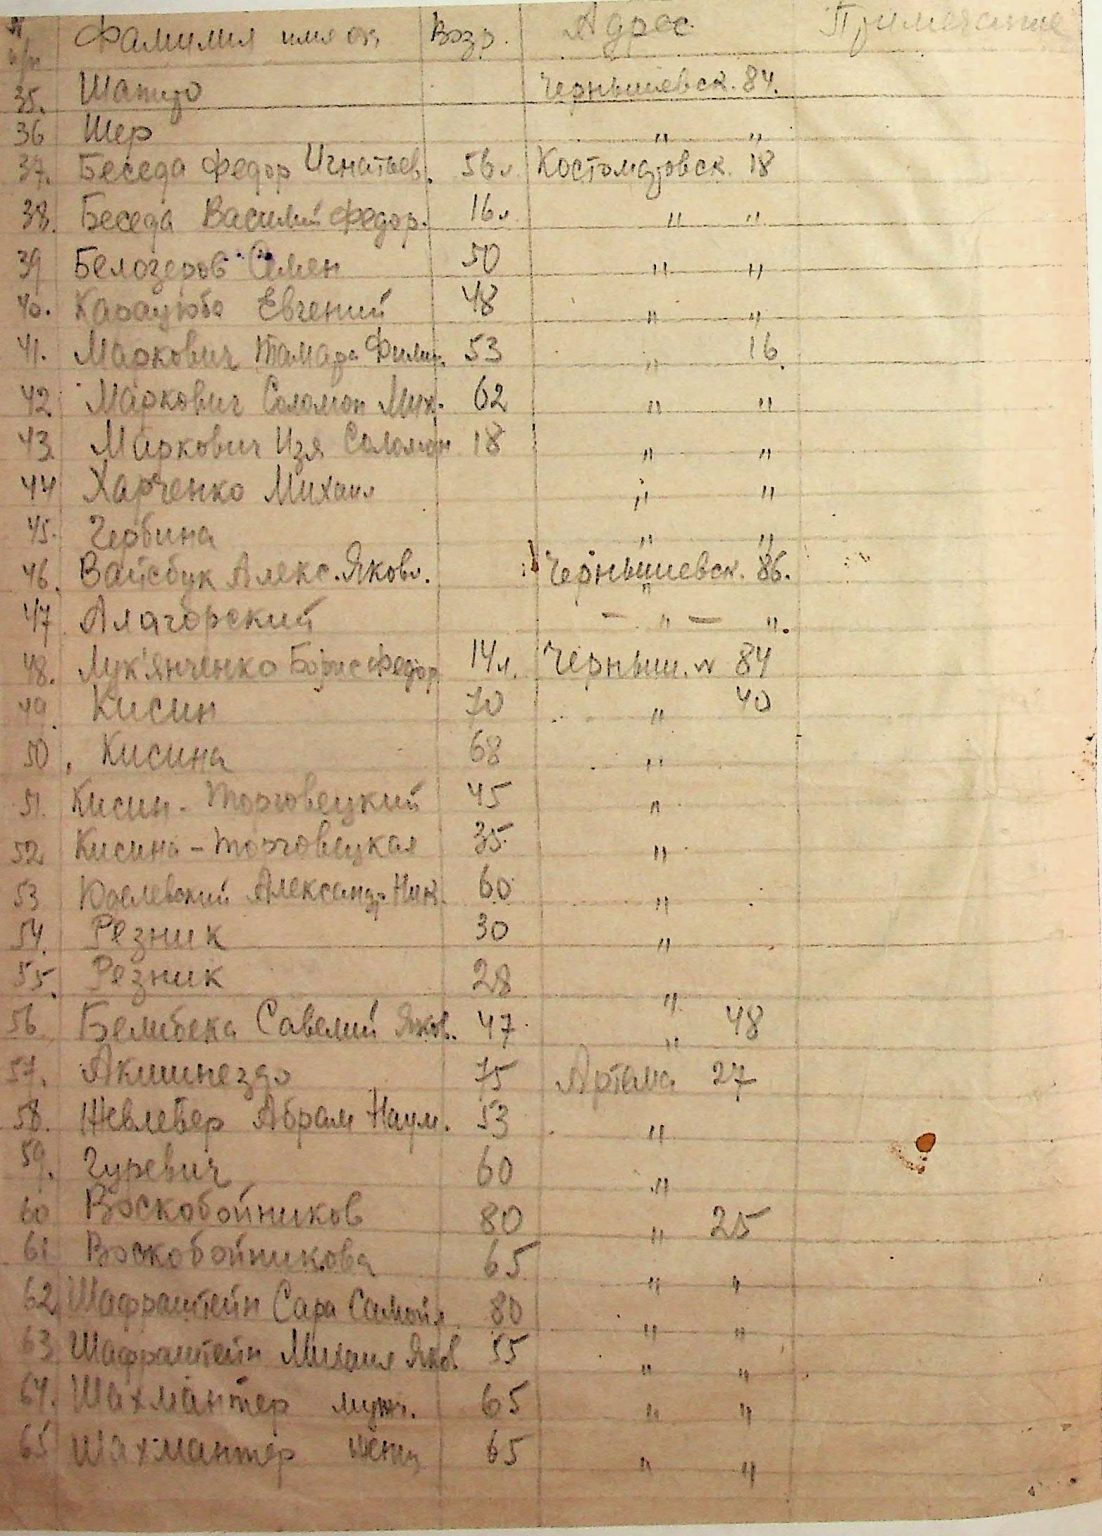 № п/п Фамилия имя от. Возр. Адрес Примечание
35. Шапиро Чернышевск. 84.
36 Шер " "
37. Беседа Федор Игнатьев. 56л Костомаровск. 18
38. Беседа Василий Федор. 16л " "
39 Белозеров Семен 50 " "
40. Карацюба Евгений 48 " "
41. Маркович Тамара Филип. 53 " 16.
42 Маркович Соломон Мих. 62 " "
43 Маркович Изя Соломон 18 " "
44 Харченко Михаил " "
45. Чербина " "
46. Вайсбук Алекс. Яковл. Чернышевск. 86.
47 Алагорский — " — ".
48. Лук'янченко Борис Федор 14л. Черныш. 84
49. Кисин 70 " 40
50. Кисина 68 "
51. Кисин-Торговецкий 45 "
52 Кисина-Торговецкая 35 "
53 Александр Ник. 60 "
54. Резник 30 "
55. Резник 28 "
56 Белибека Савелий Яков. 47 " 48
57. 75 Артема 27
58. Жевлебер Абрам Наум. 53 "
59. Гуревич 60 "
60 Воскобойников 80 " 25
61 Воскобойникова 65 " "
62 Шафраштейн Сара Самойл. 80 " "
63 Шафраштейн Михаил Яков 55 " "
64. Шахмантер муж. 65 " "
65 Шахмантер жена 65 " "